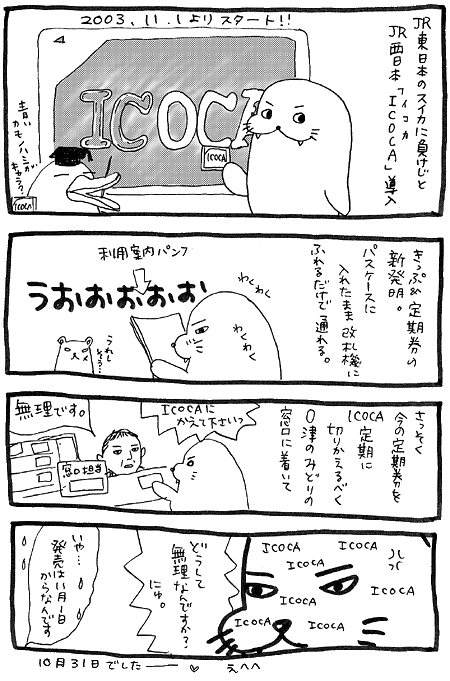 2003.11.1よりスタート!!
JR東日本のスイカに負けじと
JR西日本「イコカ
ICOCA」導入
ICOCA
ICOCA
青い
カモノハシが
キャラ?
ICOCA
きっぷ&定期券の
新発明。
パスケースに
入れたまま改札機に
ふれるだけで通れる。
利用案内パンフ
うおおおおお
わくわく
わくわく
うれし
そう…
さっそく
今の定期券を
ICOCA定期に
切りかえるべく
O津のみどりの
窓口に着いて
ICOCAに
かえて下さいっ
無理です。
窓口担当
ICOCA
ICOCA
ICOCA
ICOCA
ICOCA
ICOCA
ICOCA
どうして
無理なんですか?
にゅ。
いや…
発売は11月1日
からなんです
10月31日でした――♡ えへへ